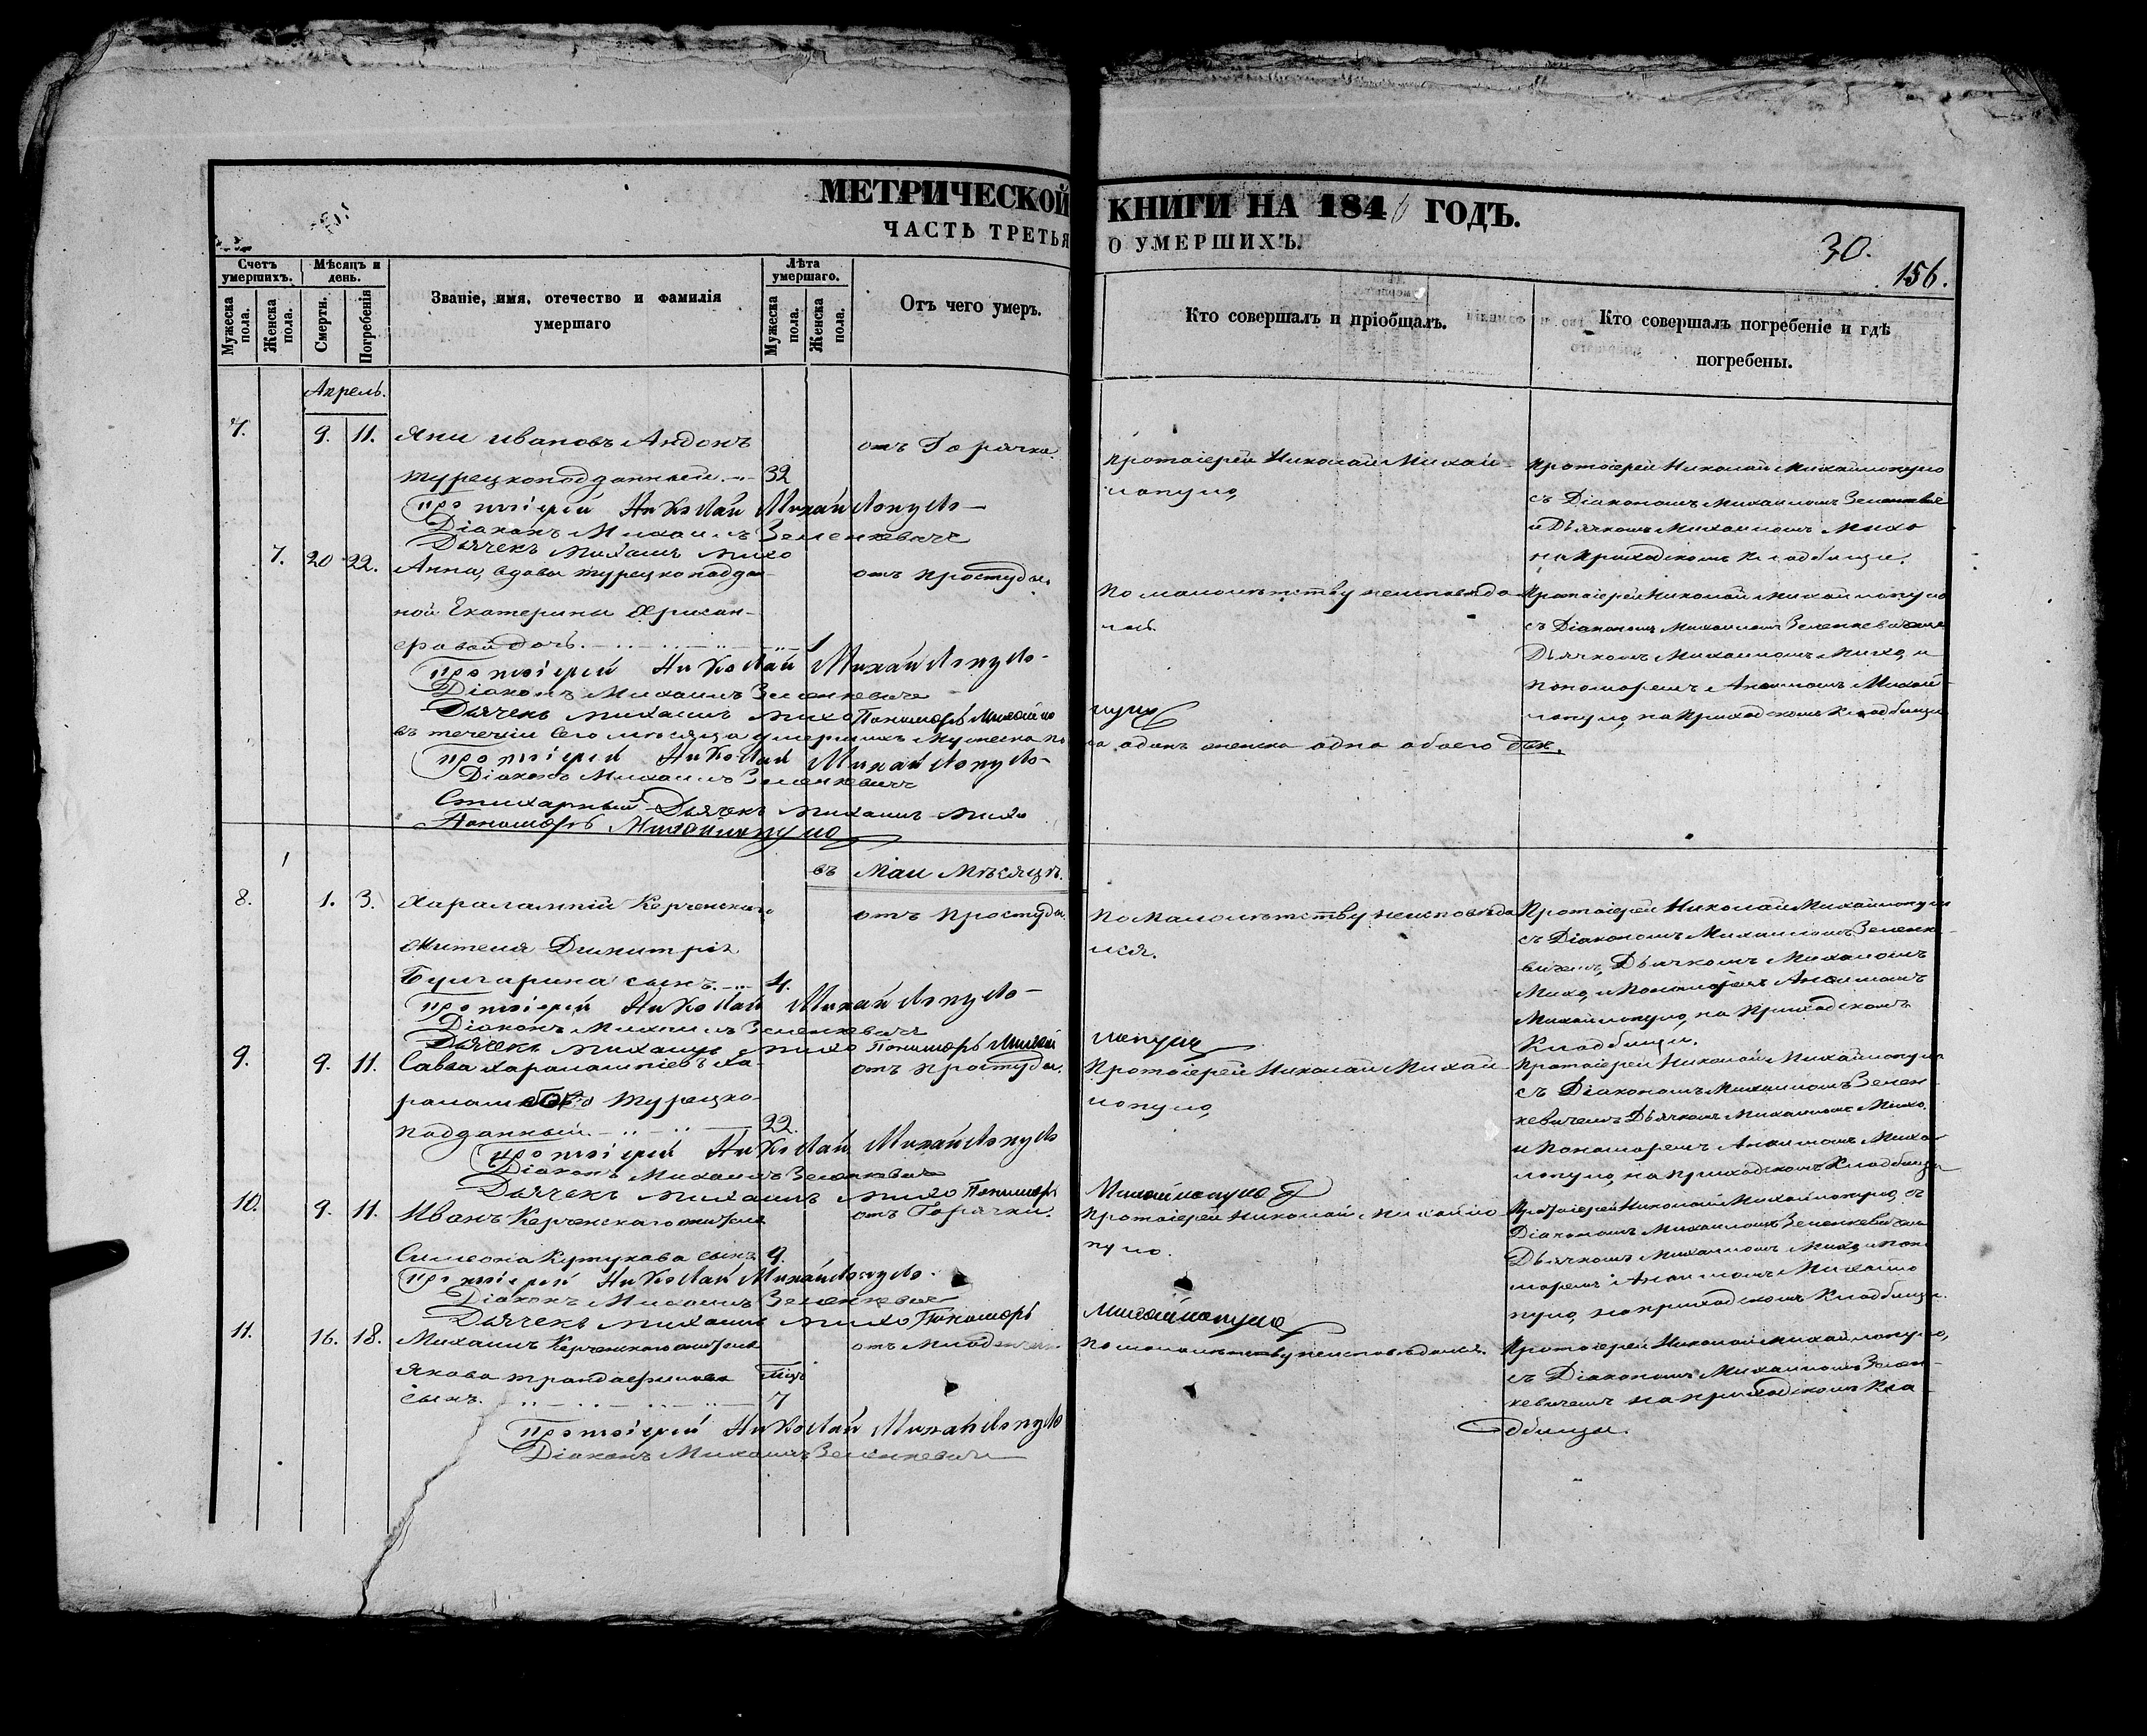 МЕТРИЧЕСКОЙ КНИГИ НА 1846 ГОДЪ.
ЧАСТЬ ТРЕТЬЯ О УМЕРШИХЪ.
30.
156.
Счетъ умершихъ.
Мужеска пола.
Женска пола.
Мѣсяцъ и день.
Смерти.
Погребенія
Званіе, имя, отечество и фамилія умершаго
Лѣта умершаго.
Мужеска пола.
Женска пола.
Отъ чего умеръ.
Кто совершалъ и пріобщалъ.
Кто совершалъ погребеніе и гдѣ погребены.
Апрель.
7. 9. 11. Яни Ивановъ Андонъ
турецкоподданный 32
отъ Горячки
Протоіерей Николай Михай-
лопуло,
Протоіерей Николай Михайлопуло
съ Діакономъ Михаиломъ
и Дьячкомъ Михаиломъ Михо
на Приходскомъ Кладбищѣ.
Протоіерей Николай Михайлопуло
Діаконъ Михаилъ Зеленкевичъ
Дьячекъ Михаилъ Михо
7. 20 22. Анна, вдова турецкоподдан-
ной Екатерины
дочь 1
отъ простуды.
По малолѣтству неисповѣда-
лась.
Протоіерей Николай Михайлопуло
съ Діакономъ Михаиломъ Зеленкевичемъ
Дьячкомъ Михаиломъ Михо, и
пономаремъ Михай-
лопуло, на Приходскомъ Кладбищѣ
Протоіерей Николай Михайлопуло
Діаконъ Михаилъ Зеленкевичъ
Дьячекъ Михаилъ Михо Пономарь Михайлопуло
въ теченіи сего мѣсяца умершихъ Мужеска пола одинъ женска одна обоего два.
Протоіерей Николай Михайлопуло
Діаконъ Михаилъ Зеленкевичъ
Стихарный Дьячекъ Михаилъ Михо
Пономарь Михайлопуло
въ Маи Мѣсяцѣ.
8. 1. 3. Харалампій Керченскаго
жителя Димитрія
Булгарина сынъ 4.
отъ простуды.
По малолѣтству неисповѣда-
лся.
Протоіерей Николай Михайлопуло
съ Діакономъ Михаиломъ Зеленке-
вичемъ, Дьячкомъ Михаиломъ
Михо, и Пономаремъ
Михайлопуло, на Приходскомъ
Кладбищѣ.
Протоіерей Николай Михайлопуло
Діаконъ Михаилъ Зеленкевичъ
Дьячекъ Михаилъ Михо Пономарь Михайлопуло
9. 9. 11. Савва Харалампіевъ Ха-
турецко-
подданный 22.
отъ простуды.
Протоіерей Николай Михай-
лопуло,
Протоіерей Николай Михайлопуло
съ Діакономъ Михаиломъ Зелен-
кевичемъ Дьячкомъ Михаиломъ Михо
и Пономаремъ Михай-
лопуло, на приходскомъ Кладбищѣ
Протоіерей Николай Михайлопуло
Діаконъ Михаилъ Зеленкевичъ
Дьячекъ Михаилъ Михо Пономарь Михайлопуло
10. 9. 11. Иванъ Керченскаго жителя
Симеона сынъ 9.
отъ Горячки.
Протоіерей Николай Михайло-
пуло.
Протоіерей Николай Михайлопуло, съ
Діакономъ Михаиломъ Зеленкевичемъ
Дьячкомъ Михаиломъ Михо, и поно-
маремъ Михайло-
пуло, на приходскомъ Кладбищѣ.
Протоіерей Николай Михайлопуло
Діаконъ Михаилъ Зеленкевичъ
Дьячекъ Михаилъ Михо Пономарь Михайлопуло
11. 16. 18. Михаилъ Керченскаго жителя
Якова
сынъ. 7
отъ
По малолѣтству неисповѣдался.
Протоіерей Николай Михайлопуло,
съ Діакономъ Михаиломъ Зелен-
кевичемъ на приходскомъ Кла-
дбищѣ.
Протоіерей Николай Михайлопуло
Діаконъ Михаилъ Зеленкевичъ